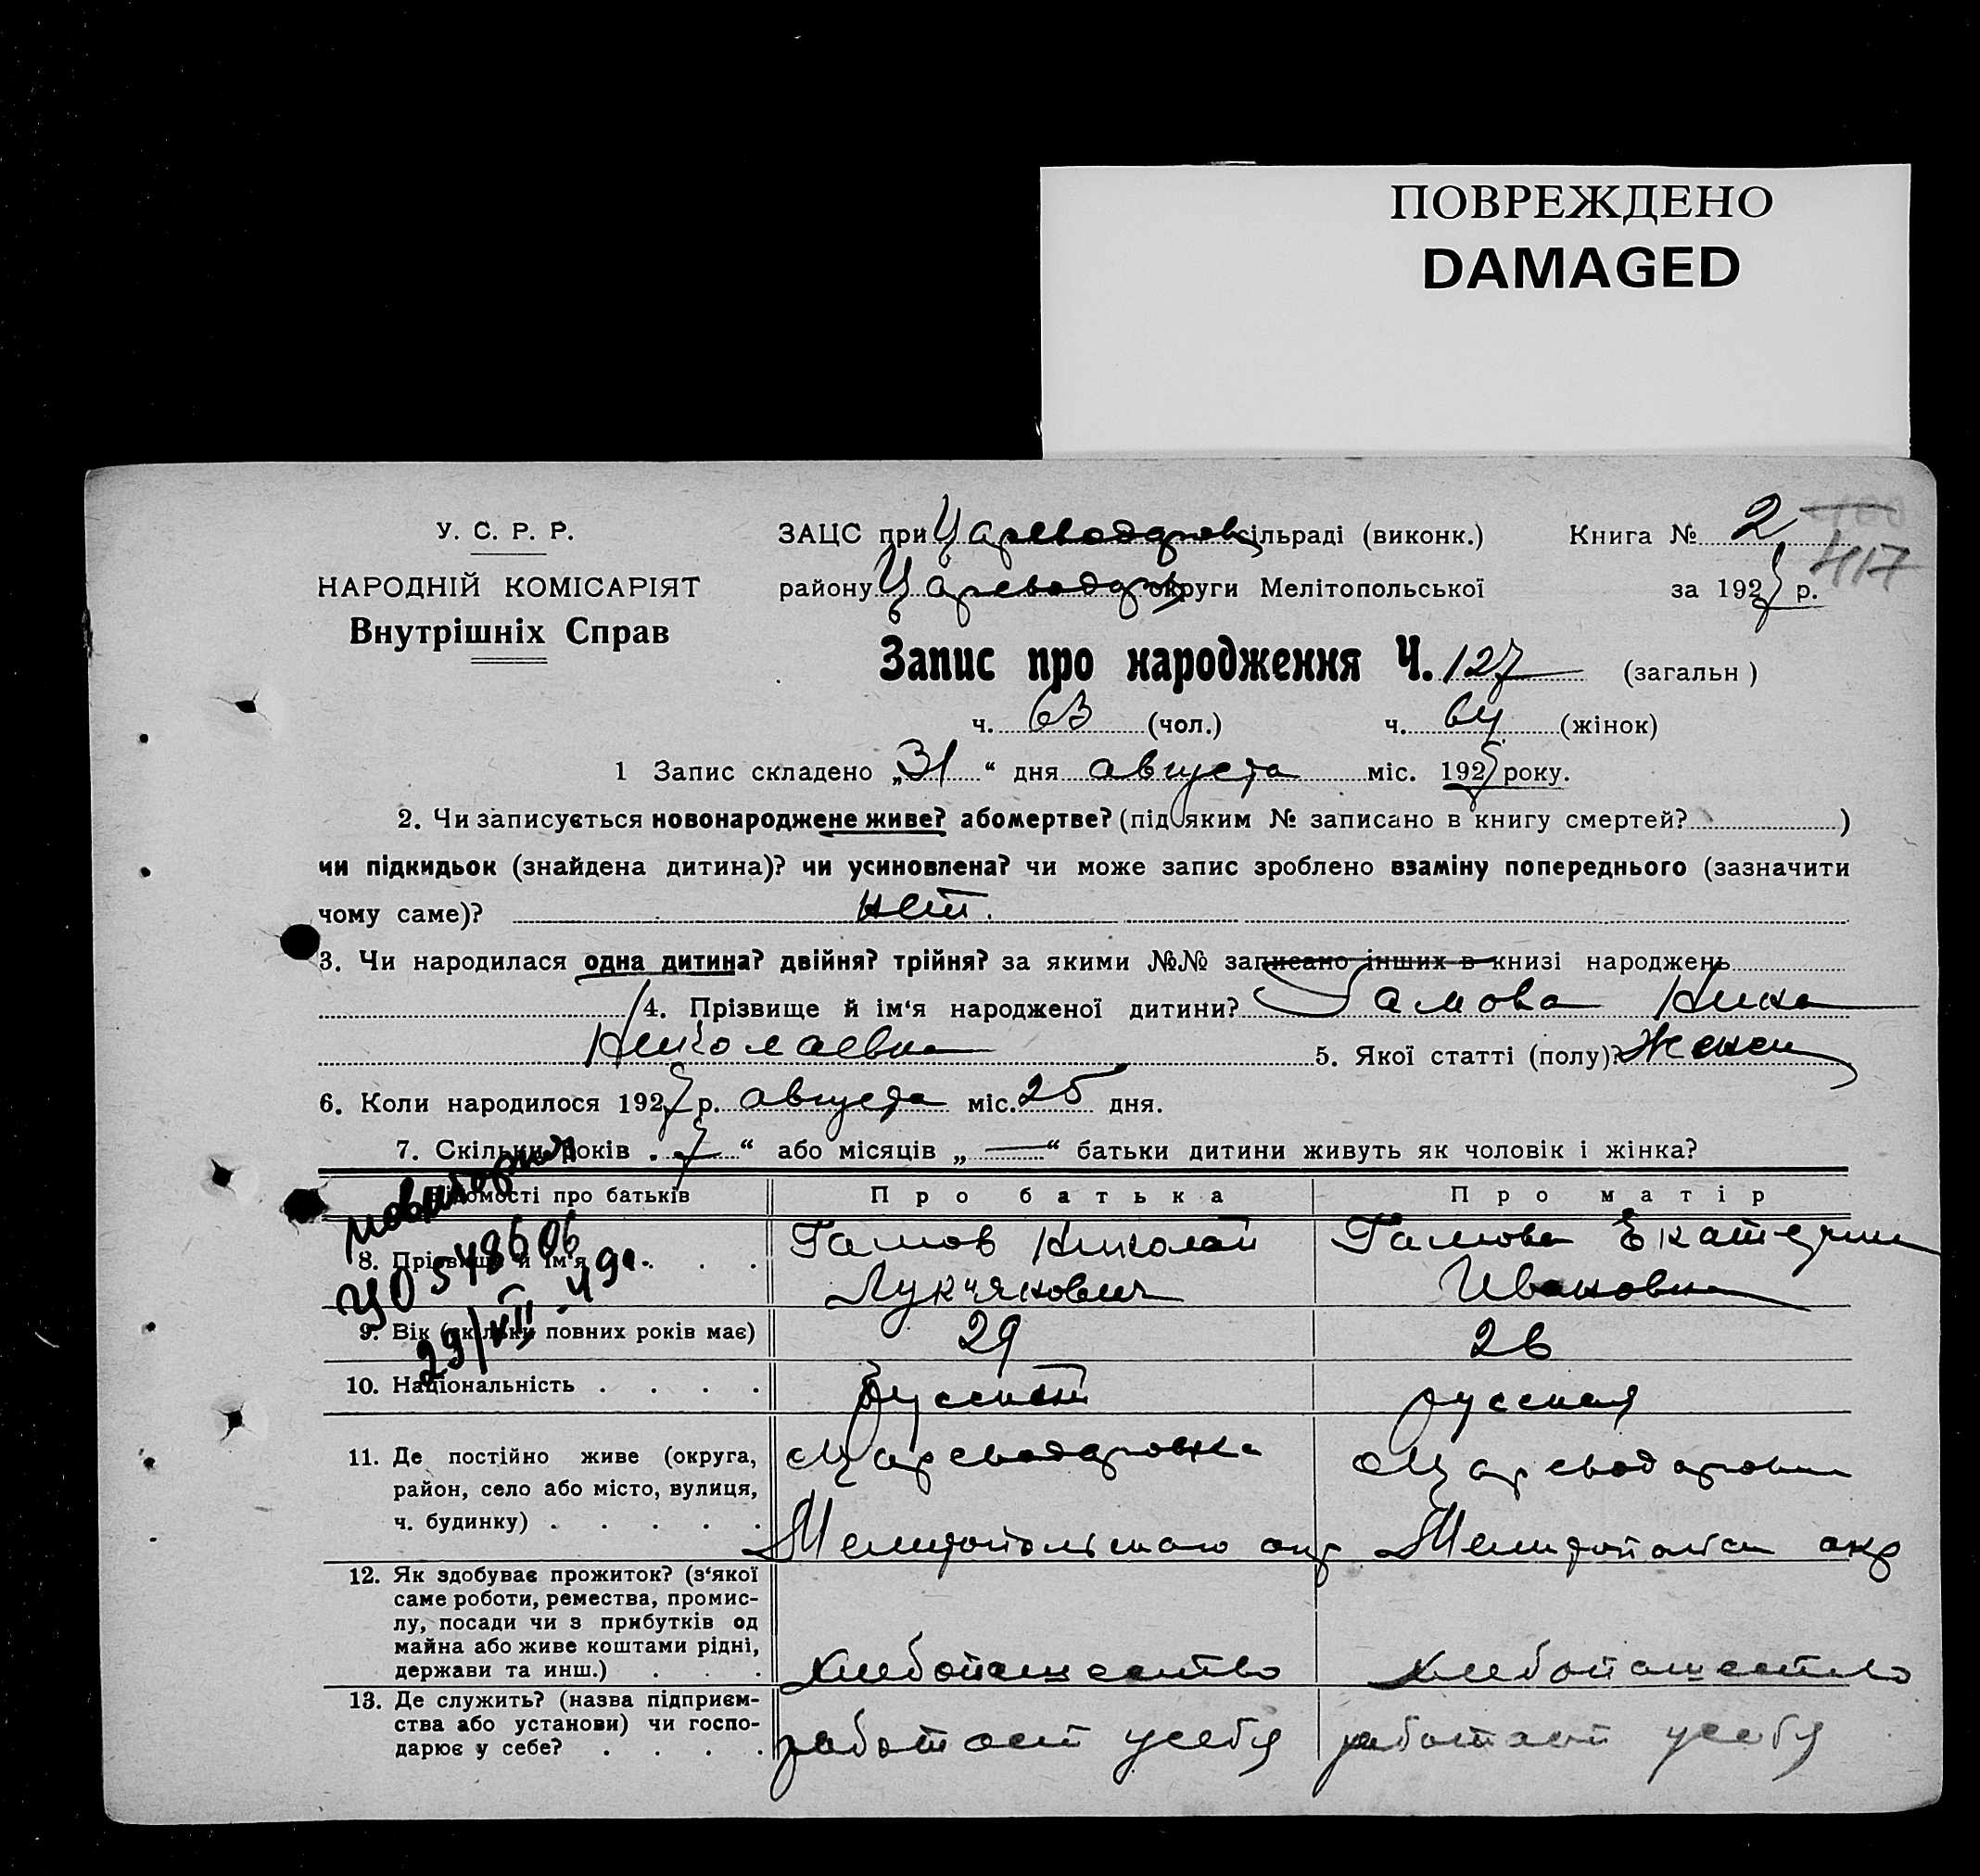 ПОВРЕЖДЕНО
DAMAGED
У. С. Р. Р.
НАРОДНІЙ КОМІСАРІЯТ
Внутрішніх Справ
ЗАЦС при Цареводаров сільраді (виконк.)
Книга № 2
417
району Цареводар округи Мелітопольської
за 1925 р.
Запис про народження Ч. 127 (загальн)
ч. 63 (чол.) ч. 64 (жінок)
1 Запис складено „31“ дня августа міс. 1925 року.
2. Чи записується новонароджене живе? або мертве? (під яким № записано в книгу смертей? )
чи підкидьок (знайдена дитина)? чи усиновлена? чи може запис зроблено взаміну попереднього (зазначити
чому саме)? нет.
3. Чи народилася одна дитина? двійня? трійня? за якими №№ записано інших в книзі народжень
4. Прізвище й ім‘я народженої дитини? Гамова Нина
Николаевна 5. Якої статті (полу)? Женск
6. Коли народилося 1925 р. августа міс. 25 дня.
7. Скільки років „7“ або місяців „—“ батьки дитини живуть як чоловік і жінка?
Відомості про батьків
Про батька
Про матір
повторн
УО 548606
29/VII 49г.
8. Прізвище й ім‘я . . .
Гамов Николай
Лукъянович
Гамова Екатерина
Ивановна
9. Вік (скільки повних років має)
29
26
10. Національність . . . .
Русский
русская
11. Де постійно живе (округа,
район, село або місто, вулиця,
ч. будинку) . . . . .
с Цареводаровка
Мелитопольского окр
с Цареводаровка
Мелитопольск окр
12. Як здобуває прожиток? (з‘якої
саме роботи, ремества, промис-
лу, посади чи з прибутків од
майна або живе коштами рідні,
держави та инш.) . . .
хлебопашество
хлебопашество
13. Де служить? (назва підприєм-
ства або установи) чи госпо-
дарює у себе? . . . .
работает у себя
работает у себя